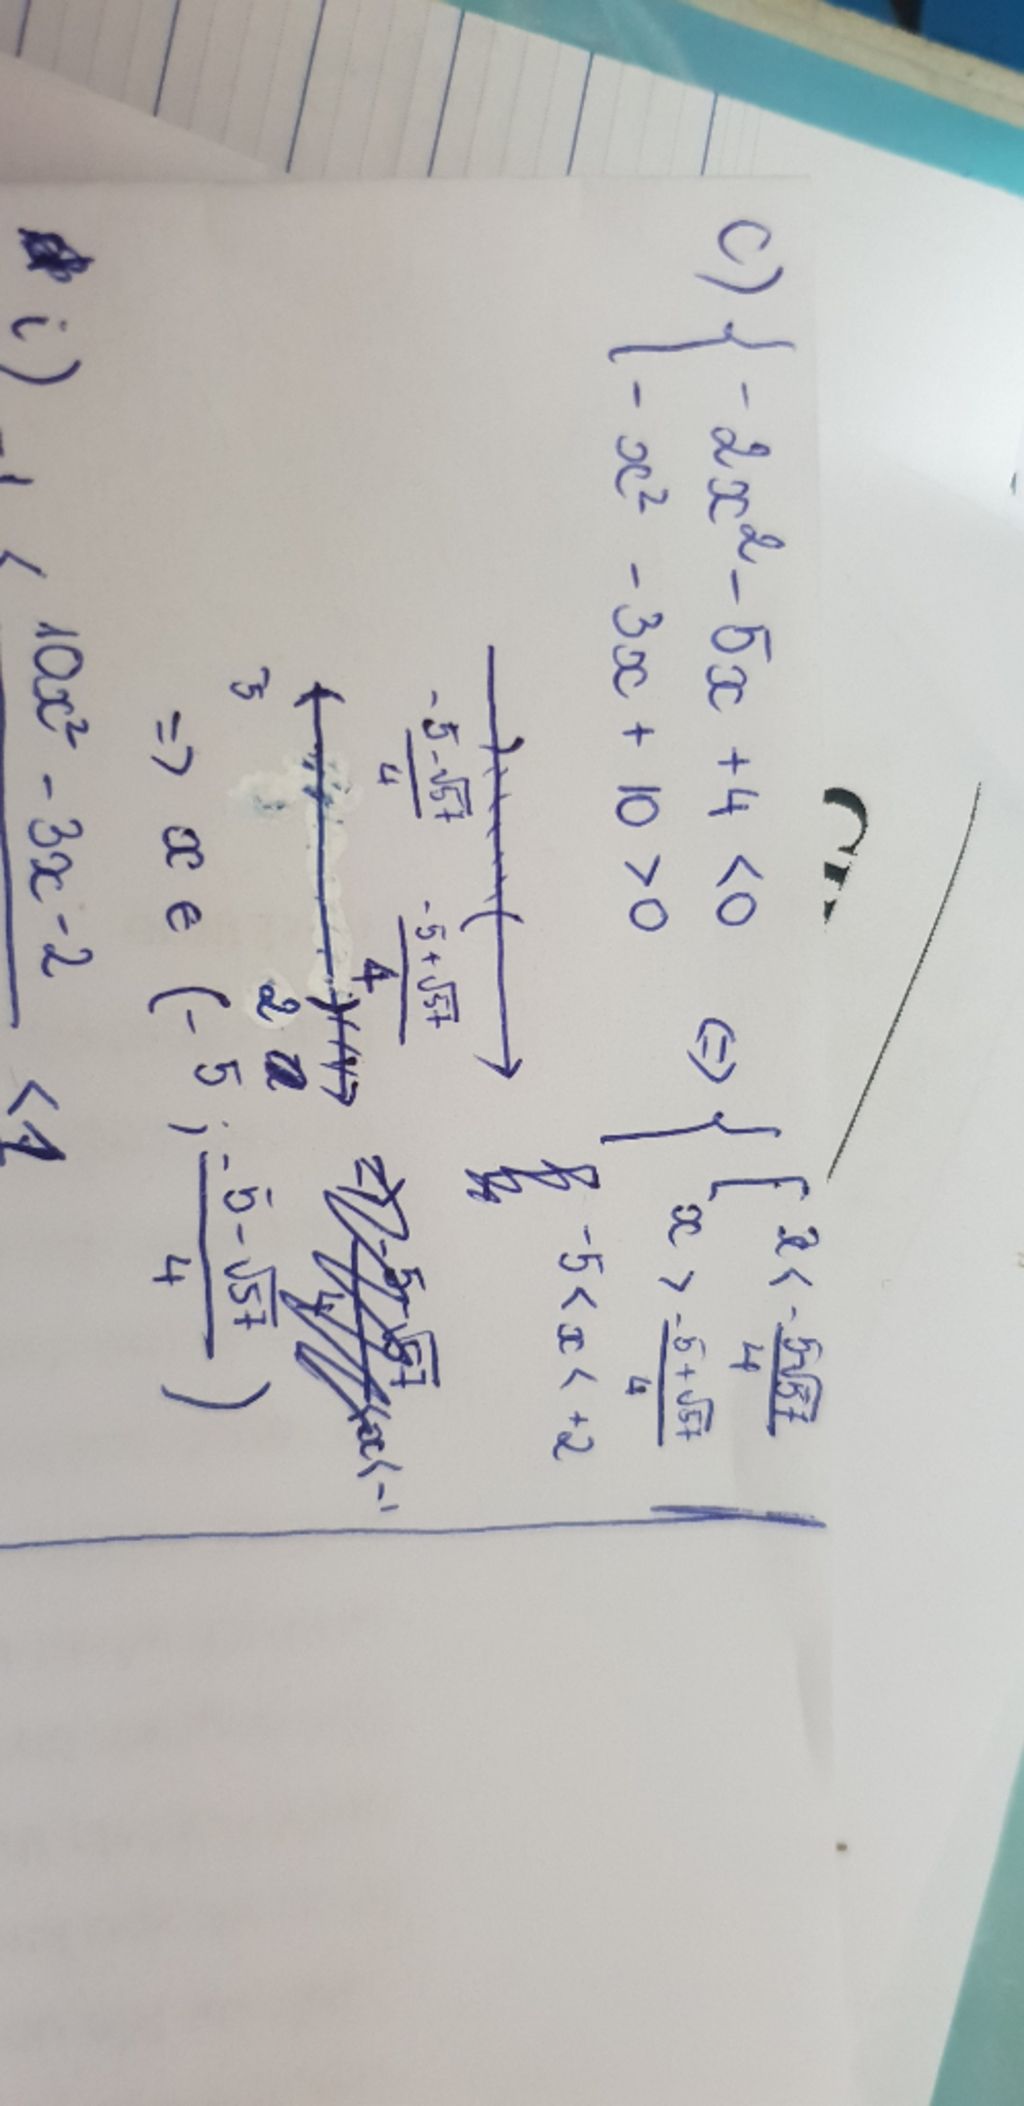 c) { -2x² - 5x + 4 < 0
{ -x² - 3x + 10 > 0
⇔ { [ x < \frac{-5-√57}{4}
x > \frac{-5+√57}{4}
-5 < x < +2
\frac{-5-√57}{4} \frac{-5+√57}{4}
2
=> x ∈ (-5 ; \frac{-5-√57}{4})
i) -1 < \frac{10x² - 3x - 2}{} < 1